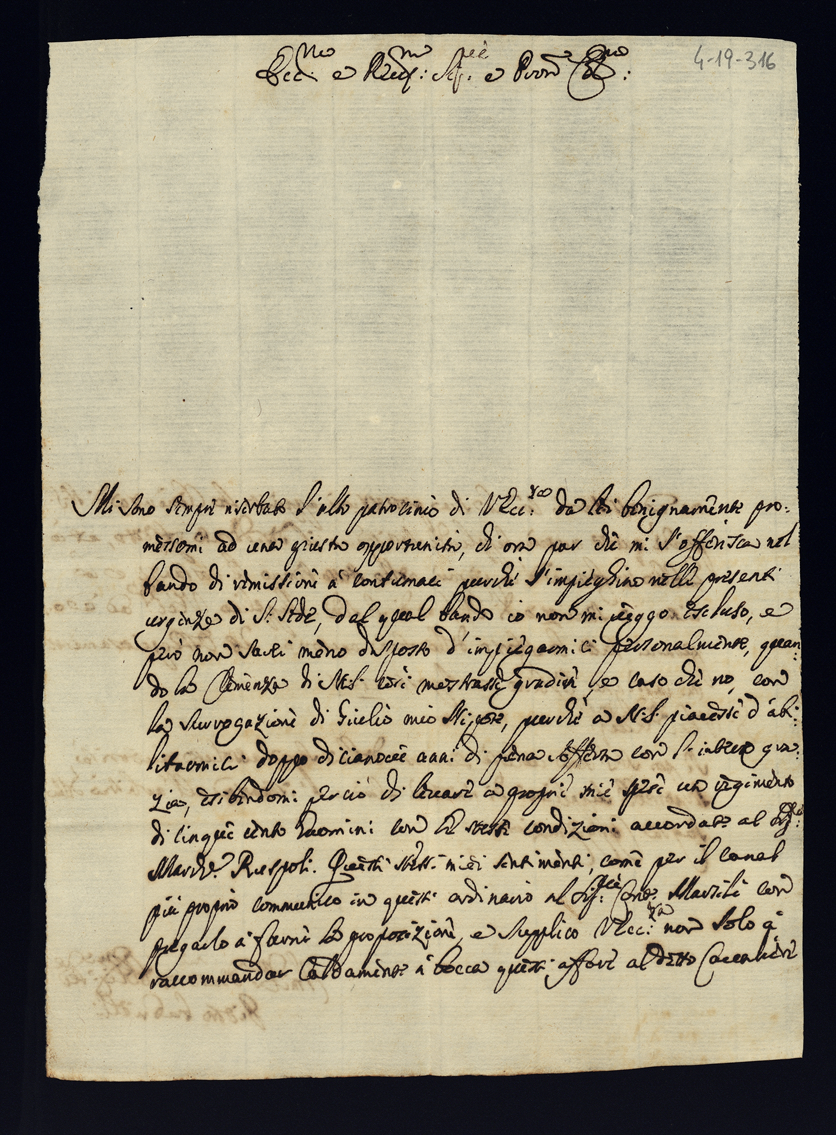 4-19-316
Ecc.mo e Rev.mo Sig.re e Pron Col.mo
Mi sono sempre riserbato l'alto patrocinio di V. Ecc.za da lei benignamente pro-
messomi ad una giusta opportunità, di ora par che mi s'offerisca nel
bando di remissione a' contumaci perche s'impieghino nelle presenti
urgenze di S. Sede, dal qual bando io non mi veggo escluso, e
però non sarei meno disposto d'impiegarmici personalmente, quan-
do la Clemenza di N.S. così mostrasse gradire, e caso che no, con
la surrogazione di Giulio mio Nipote, perche a N.S. piacesse d'abi-
litarmici doppo dicianove anni di pena sofferta con l'intera gra-
zia, esibendomi perciò di levare a proprie mie spese un regimento
di cinque cento huomini con le stesse condizioni accordate al Sig.re
March.e Ruspoli. Questi stessi miei sentimenti, come per il canal
più proprio communico in questo ordinario al Sig.re Cont.e Marsili con
pregarlo a' farne la proposizione, e supplico V. Ecc.za non solo a'
raccommandar caldamente a' bocca questo affare al detto Cavaliere